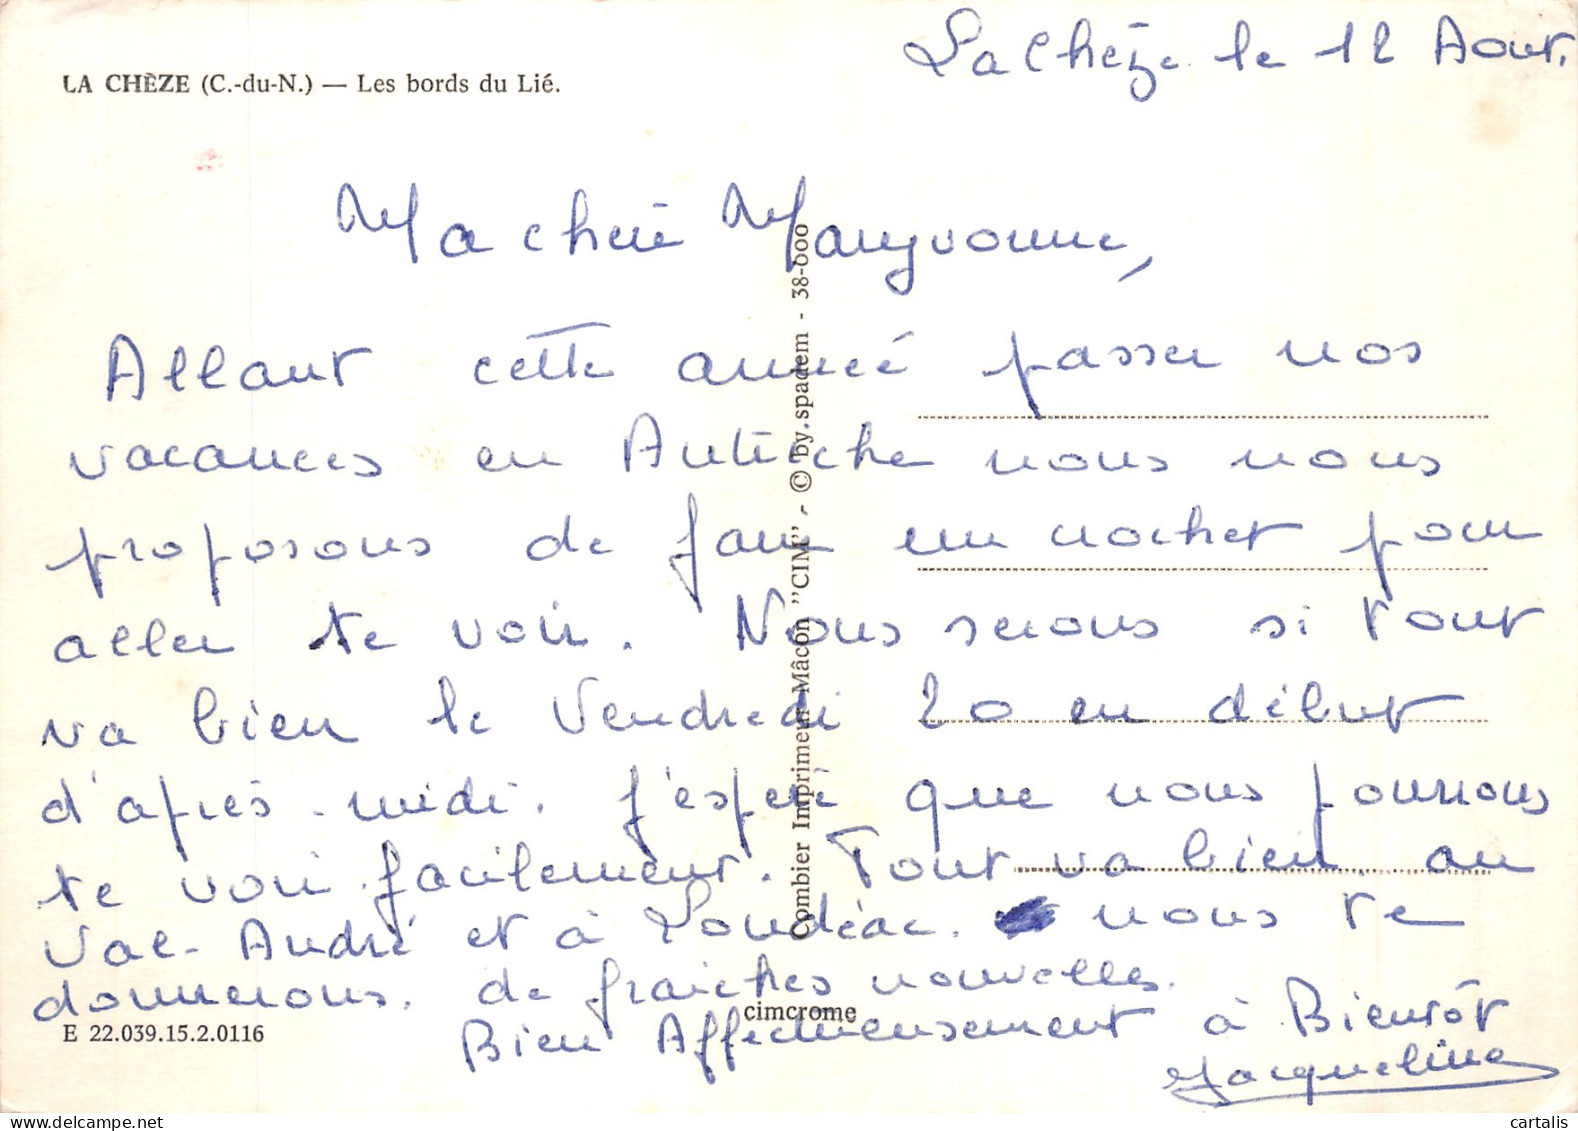 La Chèze le 12 Aout.
LA CHÈZE (C.-du-N.) — Les bords du Lié.
Ma cherie Maryvonne,
Allant cette année passer nos
vacances en Autriche nous nous
proposons de faire un crochet pour
aller te voir. Nous serons si tout
va bien le Vendredi 20 en début
d'après-midi. J'espere que nous pourrons
te voir facilement. Tout va bien au
Val-André et à Loudéac. nous te
donnerons. de fraiches nouvelles.
Bien Affectueusement à Bientôt
Jacqueline
Combier Imprimeur Mâcon "CIM" - © by. spadem - 38-000
cimcrome
E 22.039.15.2.0116
cartalis